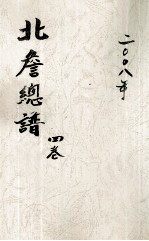 二〇〇八年
北詹總譜
四卷